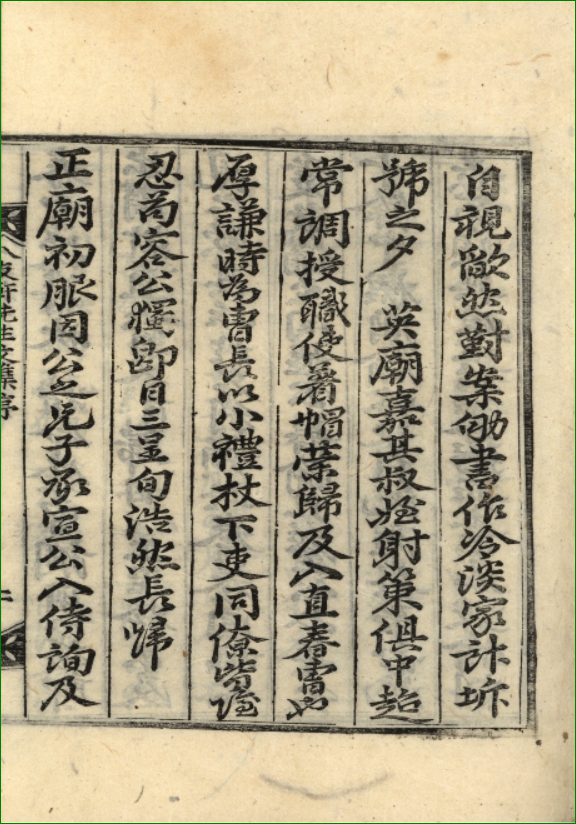 自視欿然對案劬書作冷淡家計坼
號之夕 英廟嘉其叔姪射策俱中超
常調授職使着帽榮歸及入直春曹
厚謙時為曹長以小禮杖下吏同僚皆隱
忍苟容公獨卽日三呈旬浩然長歸
正廟初服因公之兄子承宣公入侍詢及
八友軒先生文集序